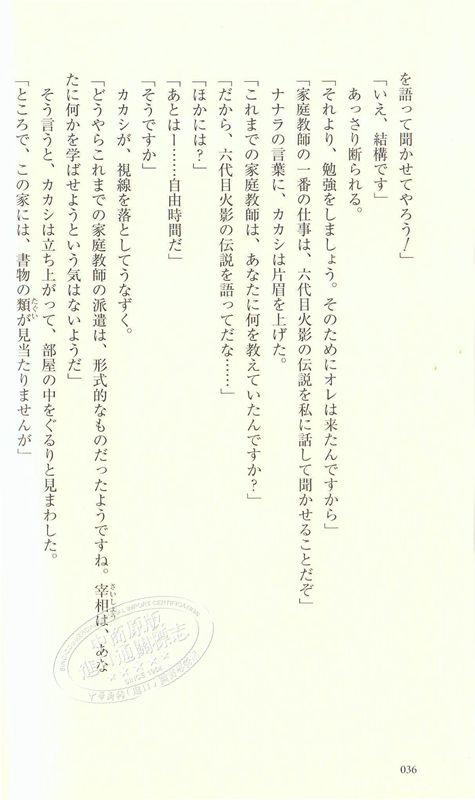 を語って聞かせてやろう！」
「いえ、結構です」
あっさり断られる。
「それより、勉強をしましょう。そのためにオレは来たんですから」
「家庭教師の一番の仕事は、六代目火影の伝説を私に話して聞かせることだぞ」
ナナラの言葉に、カカシは片眉を上げた。
「これまでの家庭教師は、あなたに何を教えていたんですか？」
「だから、六代目火影の伝説を語ってだな……」
「ほかには？」
「あとはー……自由時間だ」
「そうですか」
カカシが、視線を落としてうなずく。
「どうやらこれまでの家庭教師の派遣は、形式的なものだったようですね。宰相さいしょうは、あな
たに何かを学ばせようという気はないようだ」
そう言うと、カカシは立ち上がって、部屋の中をぐるりと見まわした。
「ところで、この家には、書物の類たぐいが見当たりませんが」
036
中商原版
進口通關標志
SINCE 1988